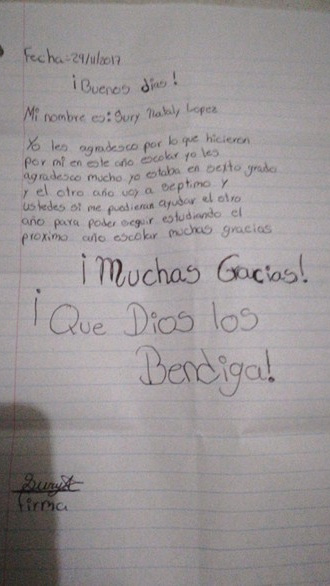 Fecha:-29/11/2017
¡Buenos dias!
Mi nombre es: Sury Nataly Lopez
Yo les agradesco por lo que hicieron
por mi en este año escolar yo les
agradesco mucho yo estaba en sexto grado
y el otro año voy a septimo y
ustedes si me pudieran ayudar el otro
año para poder seguir estudiando el
proximo año escolar muchas gracias
¡Muchas Gracias!
¡Que Dios los
Bendiga!
Sury
firma